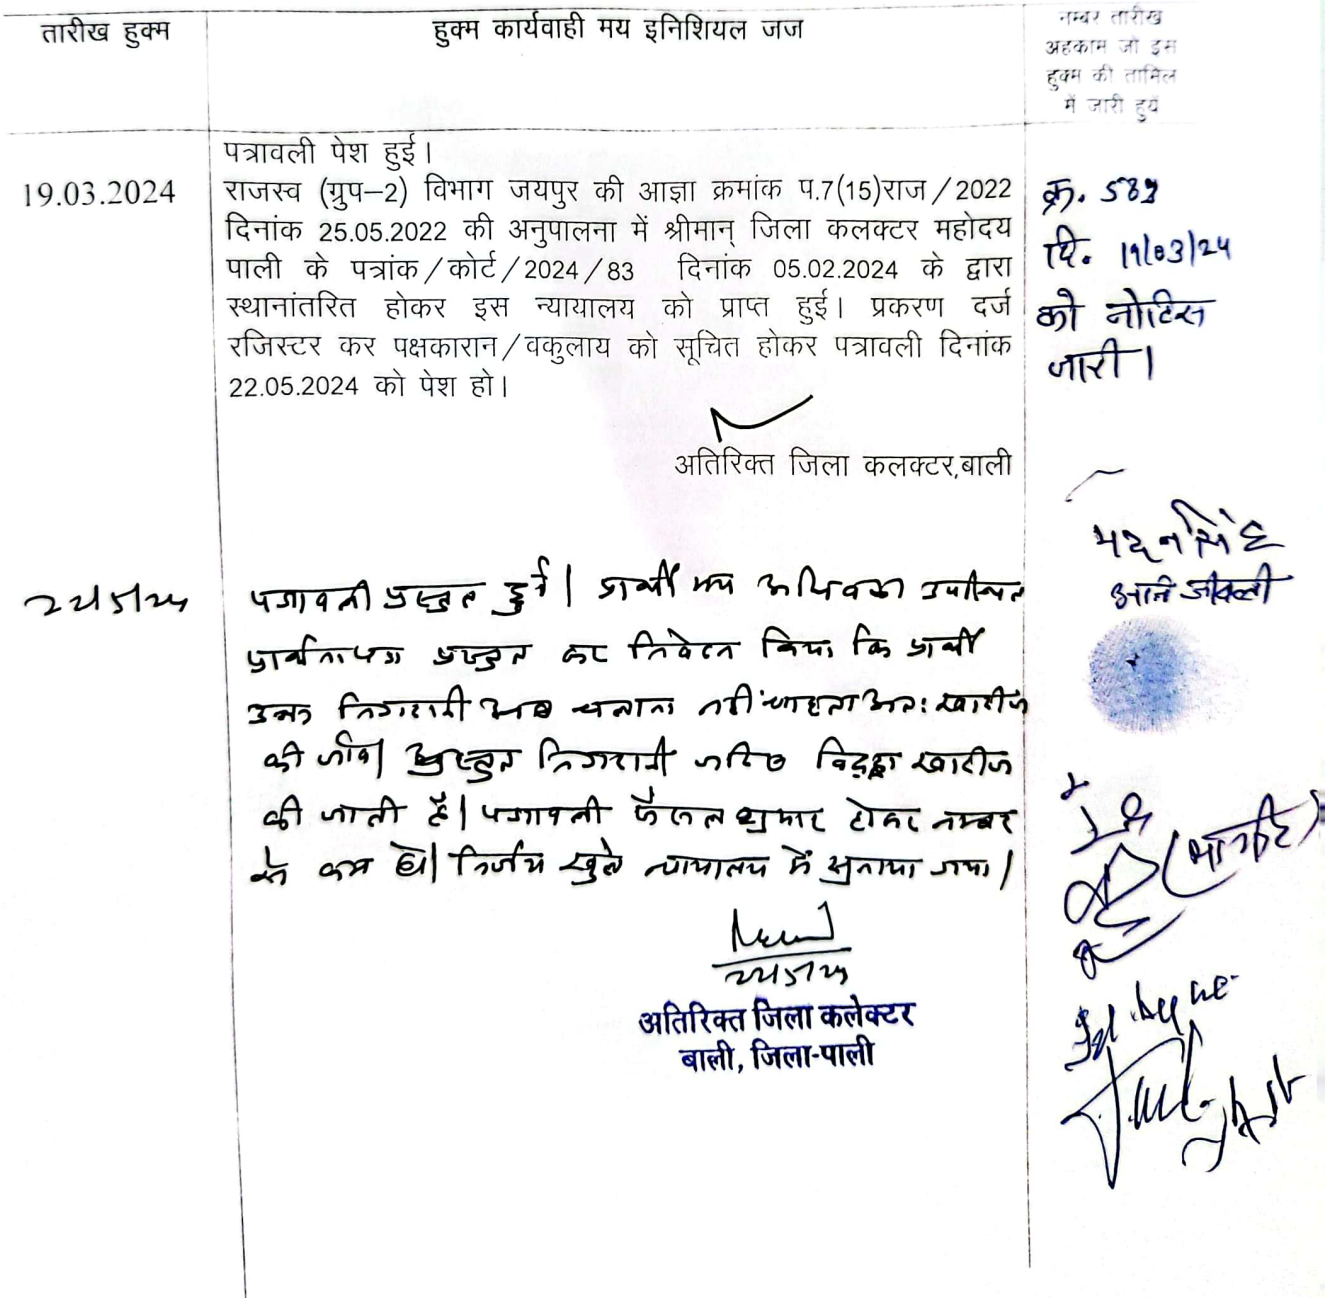 तारीख हुक्म
हुक्म कार्यवाही मय इनिशियल जज
नम्बर तारीख
अहकाम जो इस
हुक्म की तामिल
में जारी हुये
पत्रावली पेश हुई।
19.03.2024
राजस्व (ग्रुप–2) विभाग जयपुर की आज्ञा क्रमांक प.7(15)राज/2022
दिनांक 25.05.2022 की अनुपालना में श्रीमान् जिला कलक्टर महोदय
पाली के पत्रांक/कोर्ट/2024/83 दिनांक 05.02.2024 के द्वारा
स्थानांतरित होकर इस न्यायालय को प्राप्त हुई। प्रकरण दर्ज
रजिस्टर कर पक्षकारान/वकुलाय को सूचित होकर पत्रावली दिनांक
22.05.2024 को पेश हो।
अतिरिक्त जिला कलक्टर,बाली
क्र.
दि. 19/03/24
को नोटिस
जारी।
22/5/24
पत्रावली प्रस्तुत हुई। प्रार्थी मय अधिवक्ता उपस्थित
प्रार्थनापत्र प्रस्तुत कर निवेदन किया कि प्रार्थी
उक्त निगरानी अब चलाना नहीं चाहता अतः खारीज
की जावे। प्रस्तुत निगरानी जरिए विड्रा खारीज
की जाती है। पत्रावली फैसल शुमार होकर नम्बर
से कम हो। निर्णय खुले न्यायालय में सुनाया गया।
22/5/24
अतिरिक्त जिला कलेक्टर
बाली, जिला-पाली
मदनसिंह